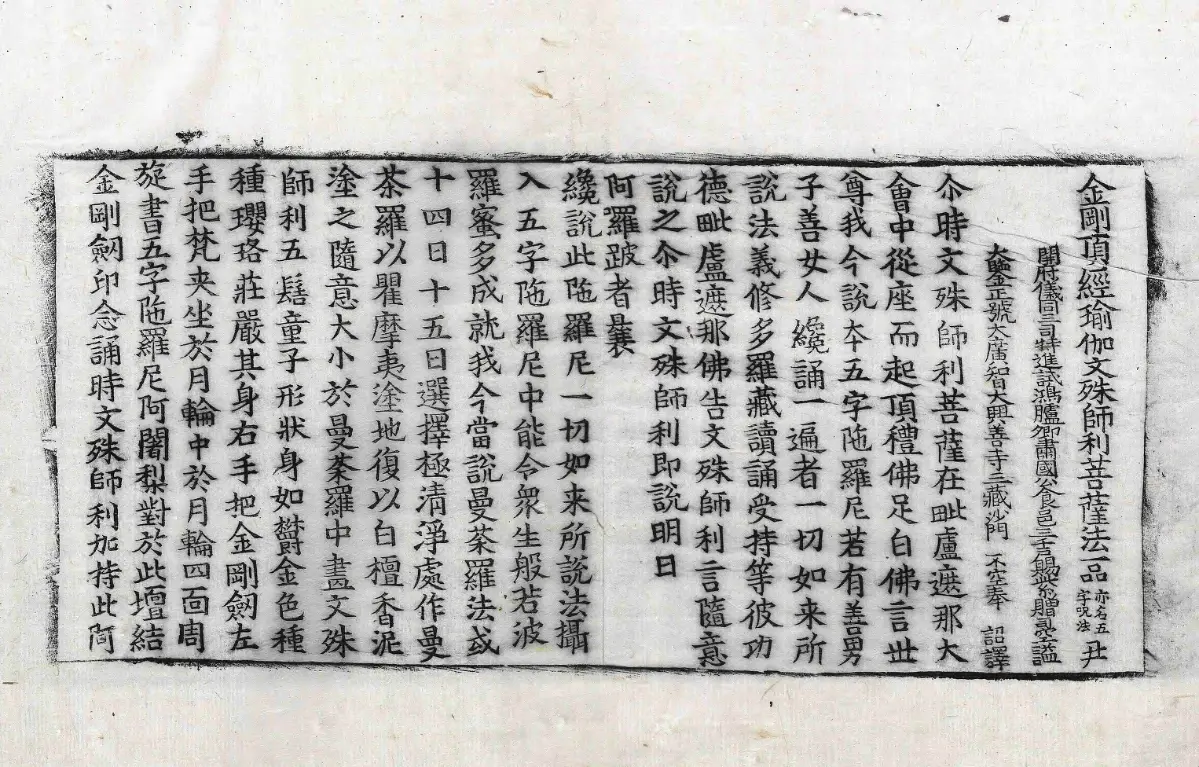 金剛頂經瑜伽文殊師利菩薩法一品 亦名五字呪法 尹
開府儀同三司特進試鴻臚卿肅國公食邑三千戶賜紫贈司空謚
大鑒正號大廣智大興善寺三藏沙門 不空奉 詔譯
尒時文殊師利菩薩在毗盧遮那大
會中從座而起頂禮佛足白佛言世
尊我今說本五字陁羅尼若有善男
子善女人纔誦一遍者一切如来所
說法義修多羅藏讀誦受持等彼功
德毗盧遮那佛告文殊師利言隨意
說之尒時文殊師利即說明曰
阿羅跛者曩
纔說此陁羅尼一切如来所說法攝
入五字陁羅尼中能令衆生般若波
羅蜜多成就我今當說曼荼羅法或
十四日十五日選擇極清淨處作曼
荼羅以瞿摩夷塗地復以白檀香泥
塗之隨意大小於曼荼羅中畫文殊
師利五髻童子形狀身如欝金色種
種瓔珞莊嚴其身右手把金剛劒左
手把梵夾坐於月輪中於月輪四面周
旋書五字陁羅尼阿闍梨對於此壇結
金剛劒印念誦時文殊師利加持此阿